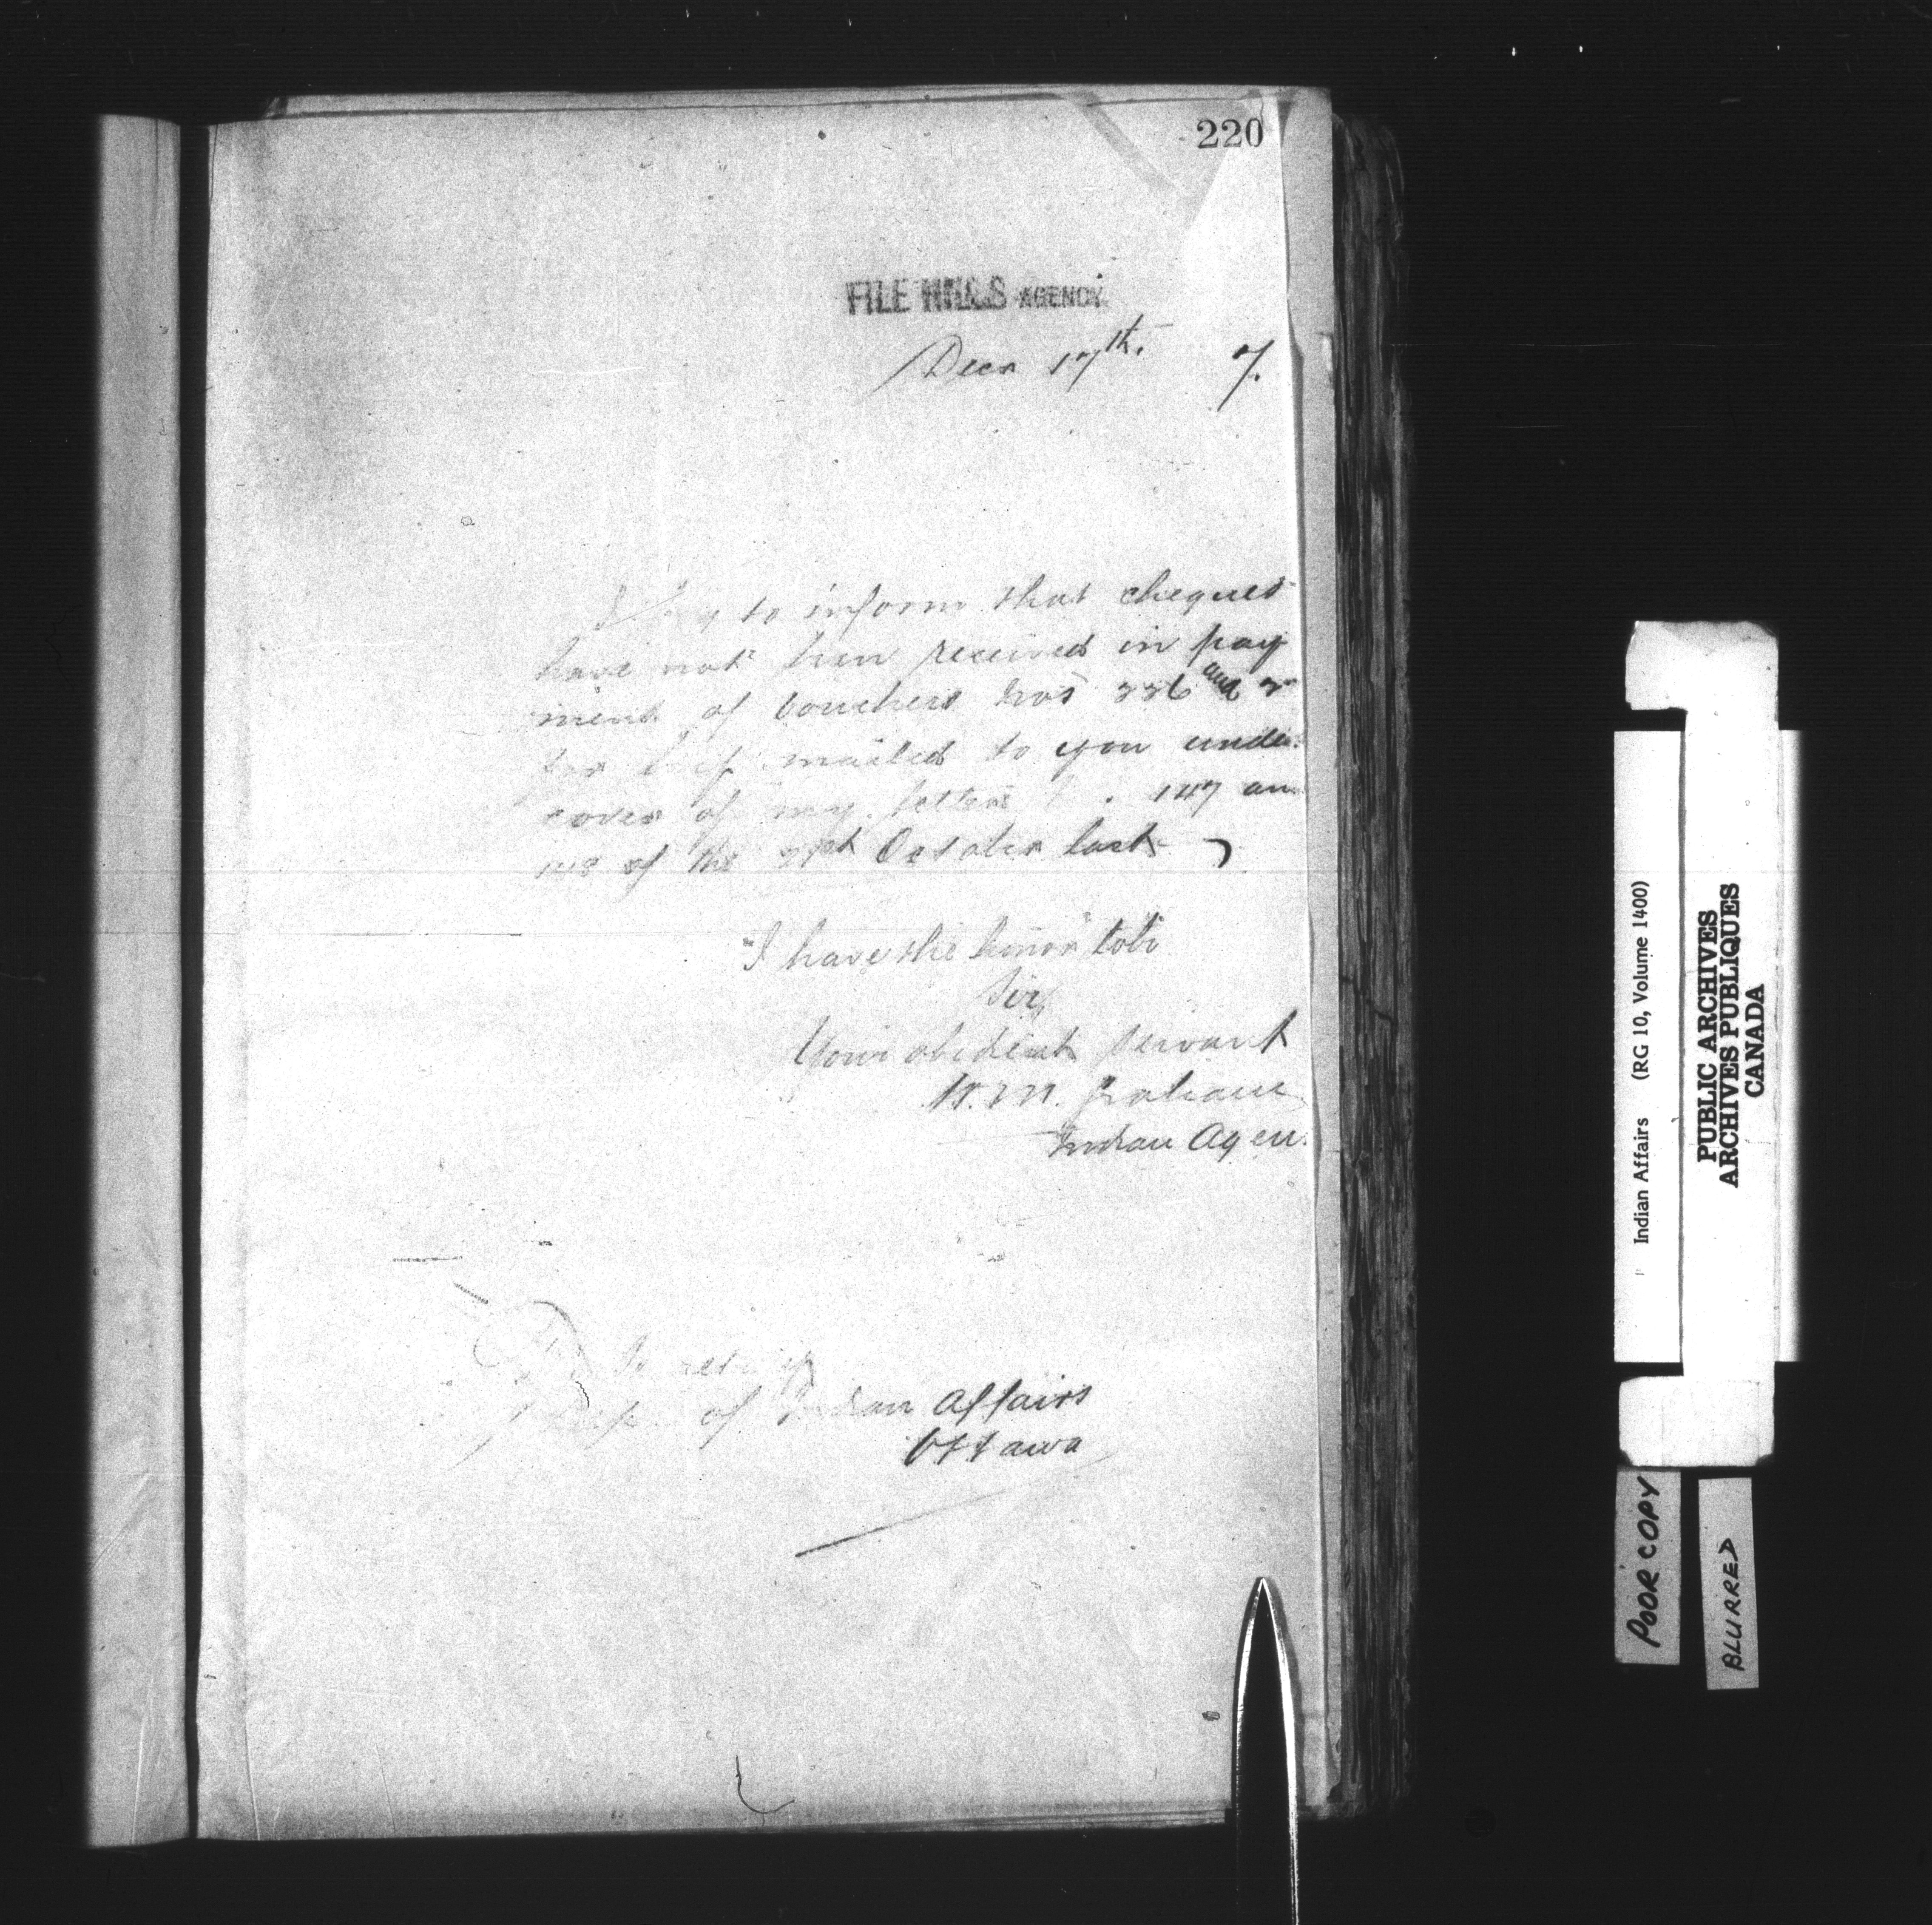 220
FILE HILLS AGENCY.
Decr 17th. 7.
to inform that cheques
have not been received in pay
ment of vouchers Nos 336 and
for beef mailed to you under
cover of my letters 147 an
148 of the 31st October last
I have the honor to be
Sir,
Your obedient servant
W. M. Graham
Indian Agen
Secretary
Dept. of Indian Affairs
Ottawa
Indian Affairs (RG 10, Volume 1400)
PUBLIC ARCHIVES
ARCHIVES PUBLIQUES
CANADA
POOR COPY
BLURRED